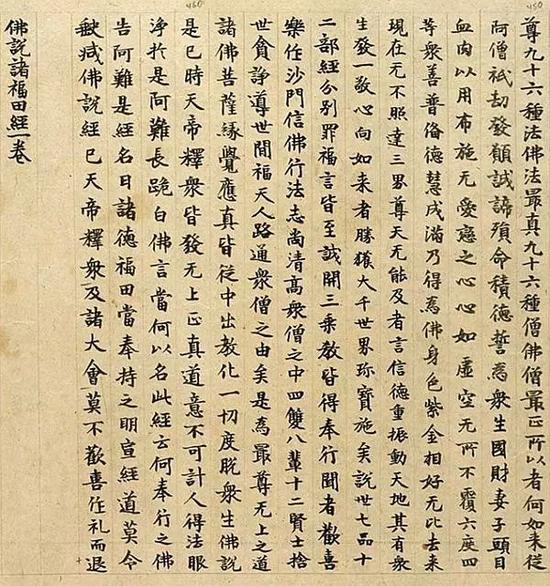 尊九十六種法佛法㝡真九十六種僧佛僧㝡正所以者何如来従
阿僧祇劫發願誠諦殞命積德誓為衆生國財妻子頭目
血肉以用布施无愛戀之心心如虛空无所不覆六度四
等衆善普俻德慧成滿乃得為佛身色紫金相好无比去来
現在无不照達三界尊天无能及者言信德重振動天地其有衆
生發一敬心向如来者勝獲大千世界珎寶施矣說卅七品十
二部經分別罪福言皆至誠開三乗教皆得奉行聞者歡喜
樂作沙門信佛行法志尚清髙衆僧之中四雙八輩十二賢士捨
世貪諍導世間福天人路通衆僧之由矣是為㝡尊无上之道
諸佛菩薩緣覺應真皆従中出教化一切度脫衆生佛說
是已時天帝釋衆皆發无上正真道意不可計人得法眼
淨於是阿難長跪白佛言當何以名此經云何奉行之佛
告阿難是經名曰諸德福田當奉持之明宣經道莫令
缺減佛說經已天帝釋衆及諸大會莫不歡喜作礼而退
佛說諸福田經一卷